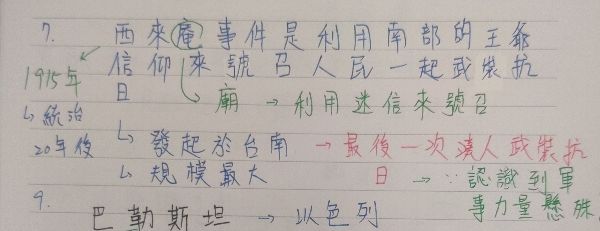 7. 西來庵事件是利用南部的王爺
1915年 信仰來號召人民一起武裝抗
日 ↳ 廟 → 利用迷信來號召
↳ 統治
20年後 ↳ 發起於台南 → 最後一次漢人武裝抗
↳ 規模最大 日 → ∵ 認識到軍
事力量懸殊
9.
巴勒斯坦 → 以色列